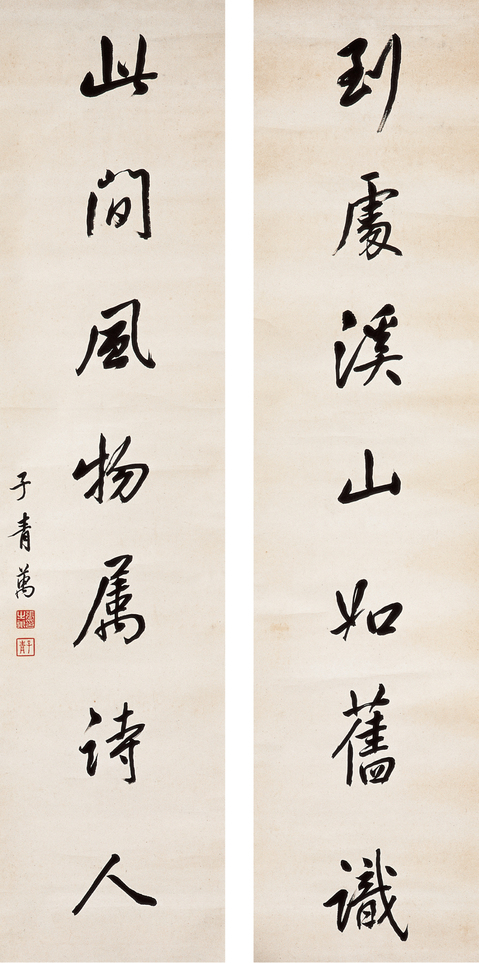 到處溪山如舊識
此間風物属詩人
子青萬